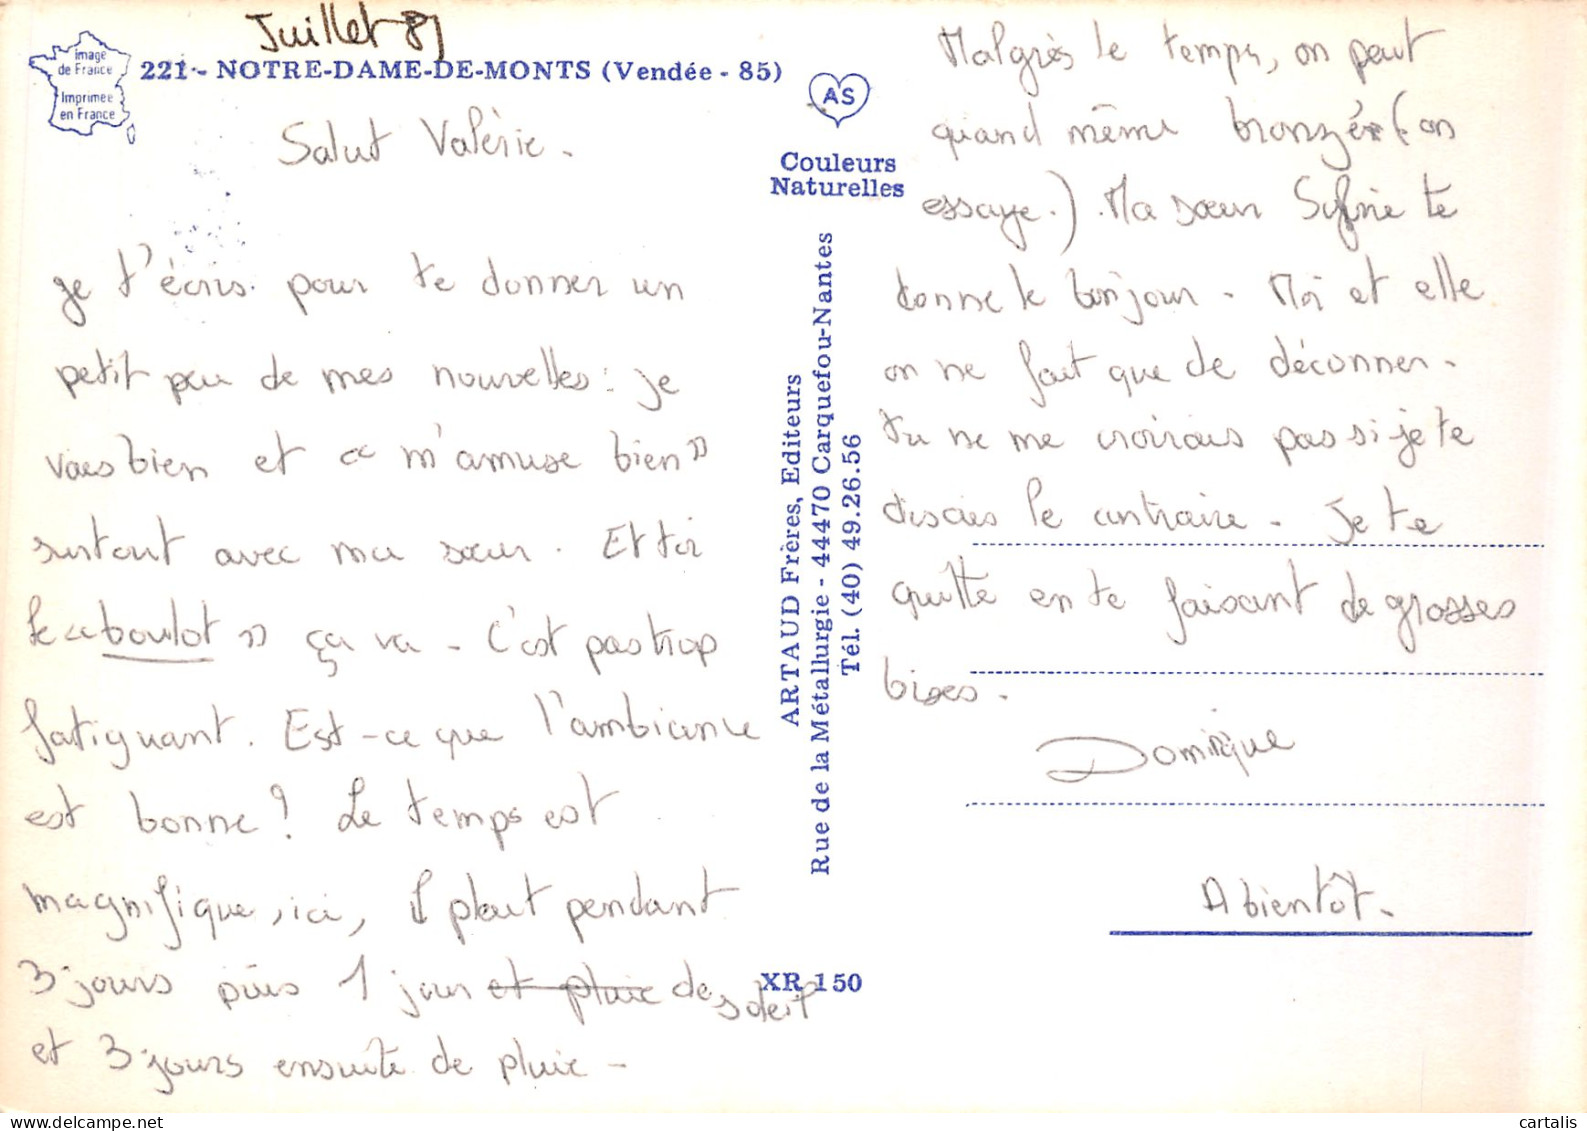 Juillet 81
image
de France
Imprimée
en France
221 - NOTRE-DAME-DE-MONTS (Vendée - 85)
Salut Valérie.
je t'écris pour te donner un
petit peu de mes nouvelles : je
vais bien et « m'amuse bien »
surtout avec ma sœur. Et toi
le « boulot » ça va - C'est pas trop
fatiguant. Est-ce que l'ambiance
est bonne ? Le temps est
magnifique, ici, il pleut pendant
3 jours puis 1 jour et pluie de soleil
et 3 jours ensuite de pluie -
AS
Couleurs
Naturelles
ARTAUD Frères, Editeurs
Rue de la Métallurgie - 44470 Carquefou-Nantes
Tél. (40) 49.26.56
XR 150
Malgrès le temps, on peut
quand même bronzér (on
essaye.). Ma sœur Sylvie te
donne le bonjour - Moi et elle
on ne fait que de déconner -
tu ne me croirais pas si je te
disais le contraire - Je te
quitte en te faisant de grosses
bises.
Dominique
A bientôt -
cartalis